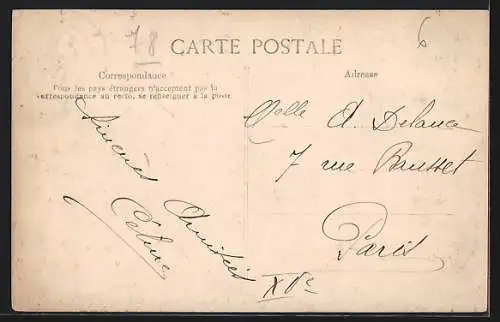 78
6
CARTE POSTALE
Correspondance
Tous les pays étrangers n'acceptent pas la
correspondance au recto, se renseigner à la poste
Adresse
Sincères Amitiés
Melle A. Delance
7 rue Brusset
Paris
XVe